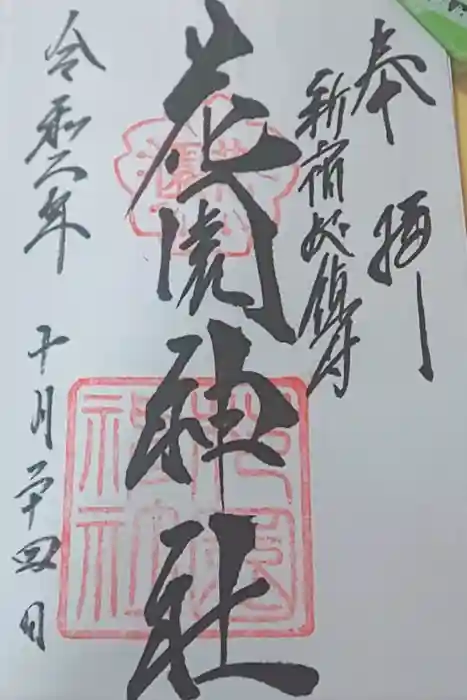 奉拝
新宿総鎮守
花園神社
花園神社
令和二年 十月二十四日